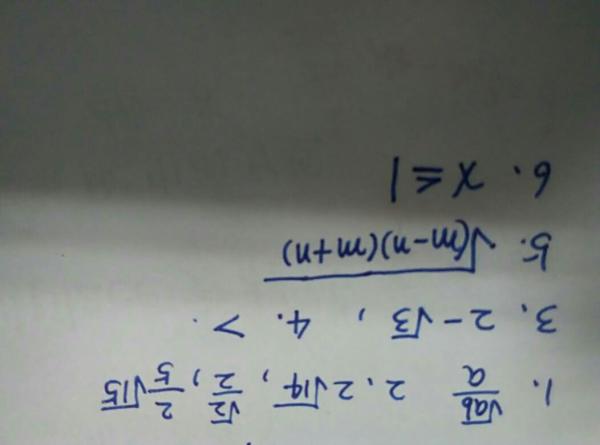 1. √ab/a 2. 2√14, √2/2, 2/5√15
3. 2-√3, 4. >.
5. √(m-n)(m+n)
6. x ≤ 1